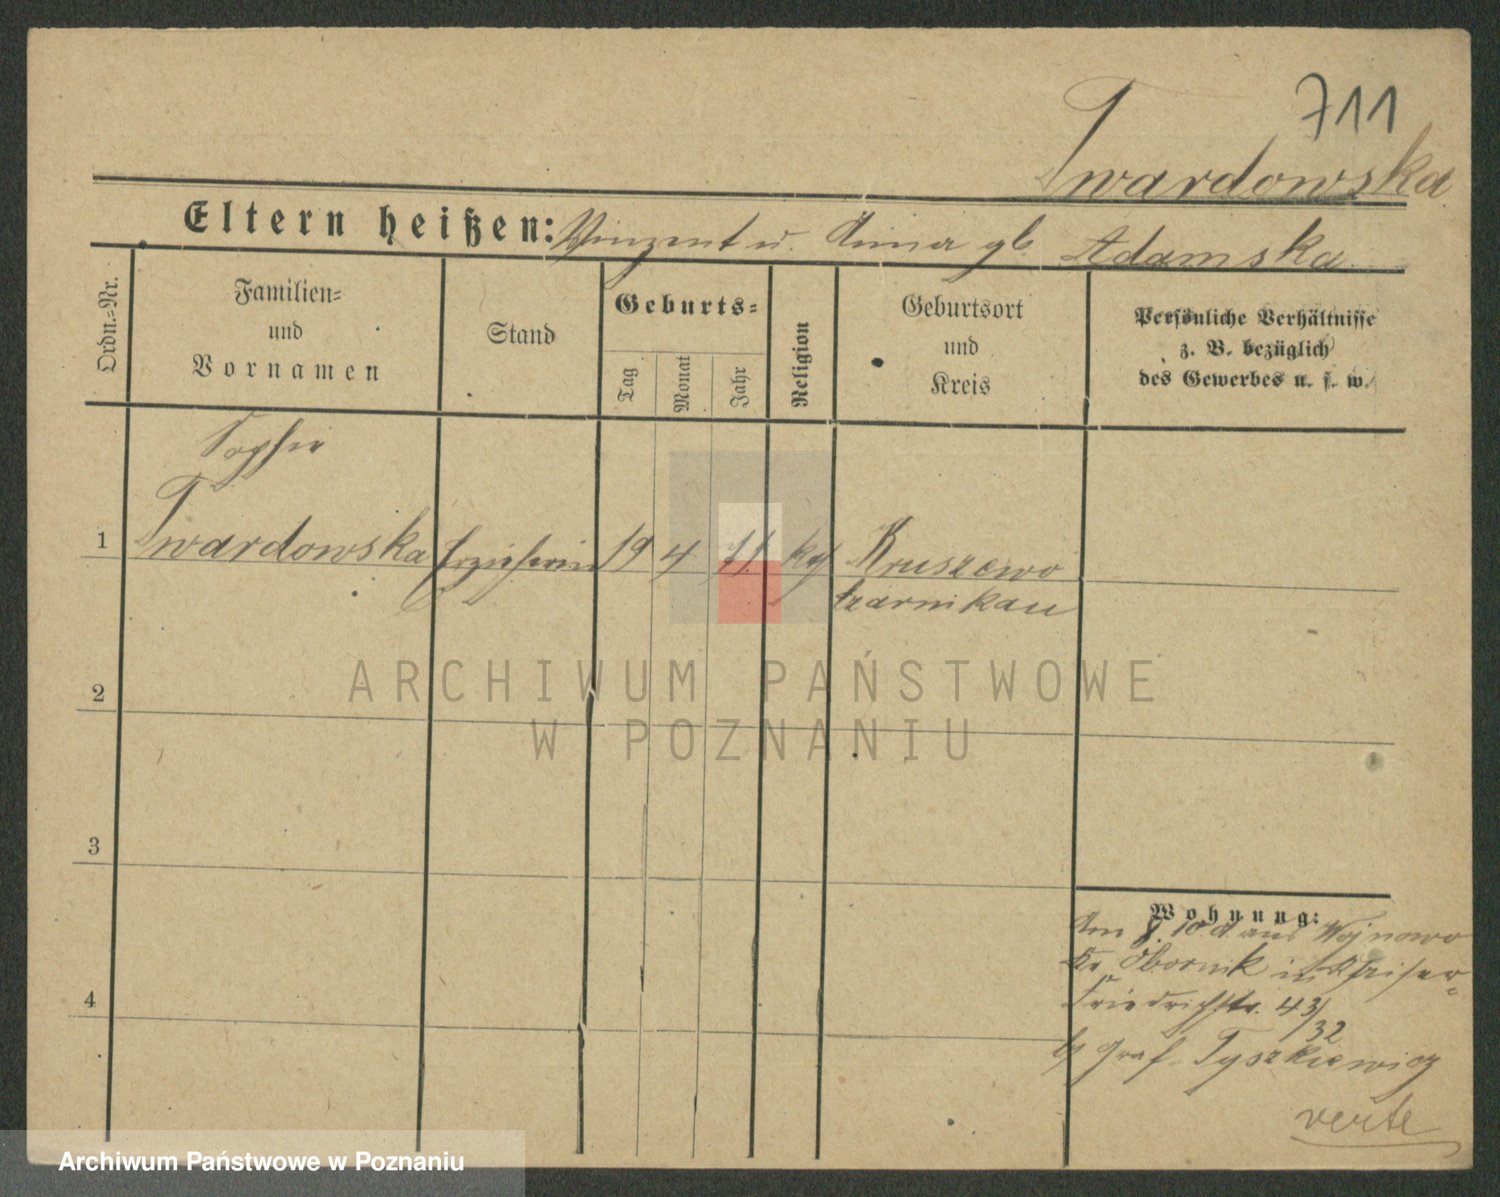 711
Twardowska
Eltern heißen: Vinzent u. Anna gb. Adamska
Ordn.=Nr.
Familien=
und
Vornamen
Stand
Geburts=
Tag
Monat
Jahr
Religion
Geburtsort
und
Kreis
Persönliche Verhältnisse
z. B. bezüglich
des Gewerbes u. s. w.
Sophie
1 Twardowska Erzieherin 19 4 71 kg Kruszewo
Czarnikau
ARCHIWUM PAŃSTWOWE
W POZNANIU
2
3
4
Wohnung:
10 aus Wojnowo
Kr Obornik in Kaiser-
Friedrichstr. 43/
32
b/ Graf Tyszkiewicz
verte
Archiwum Państwowe w Poznaniu